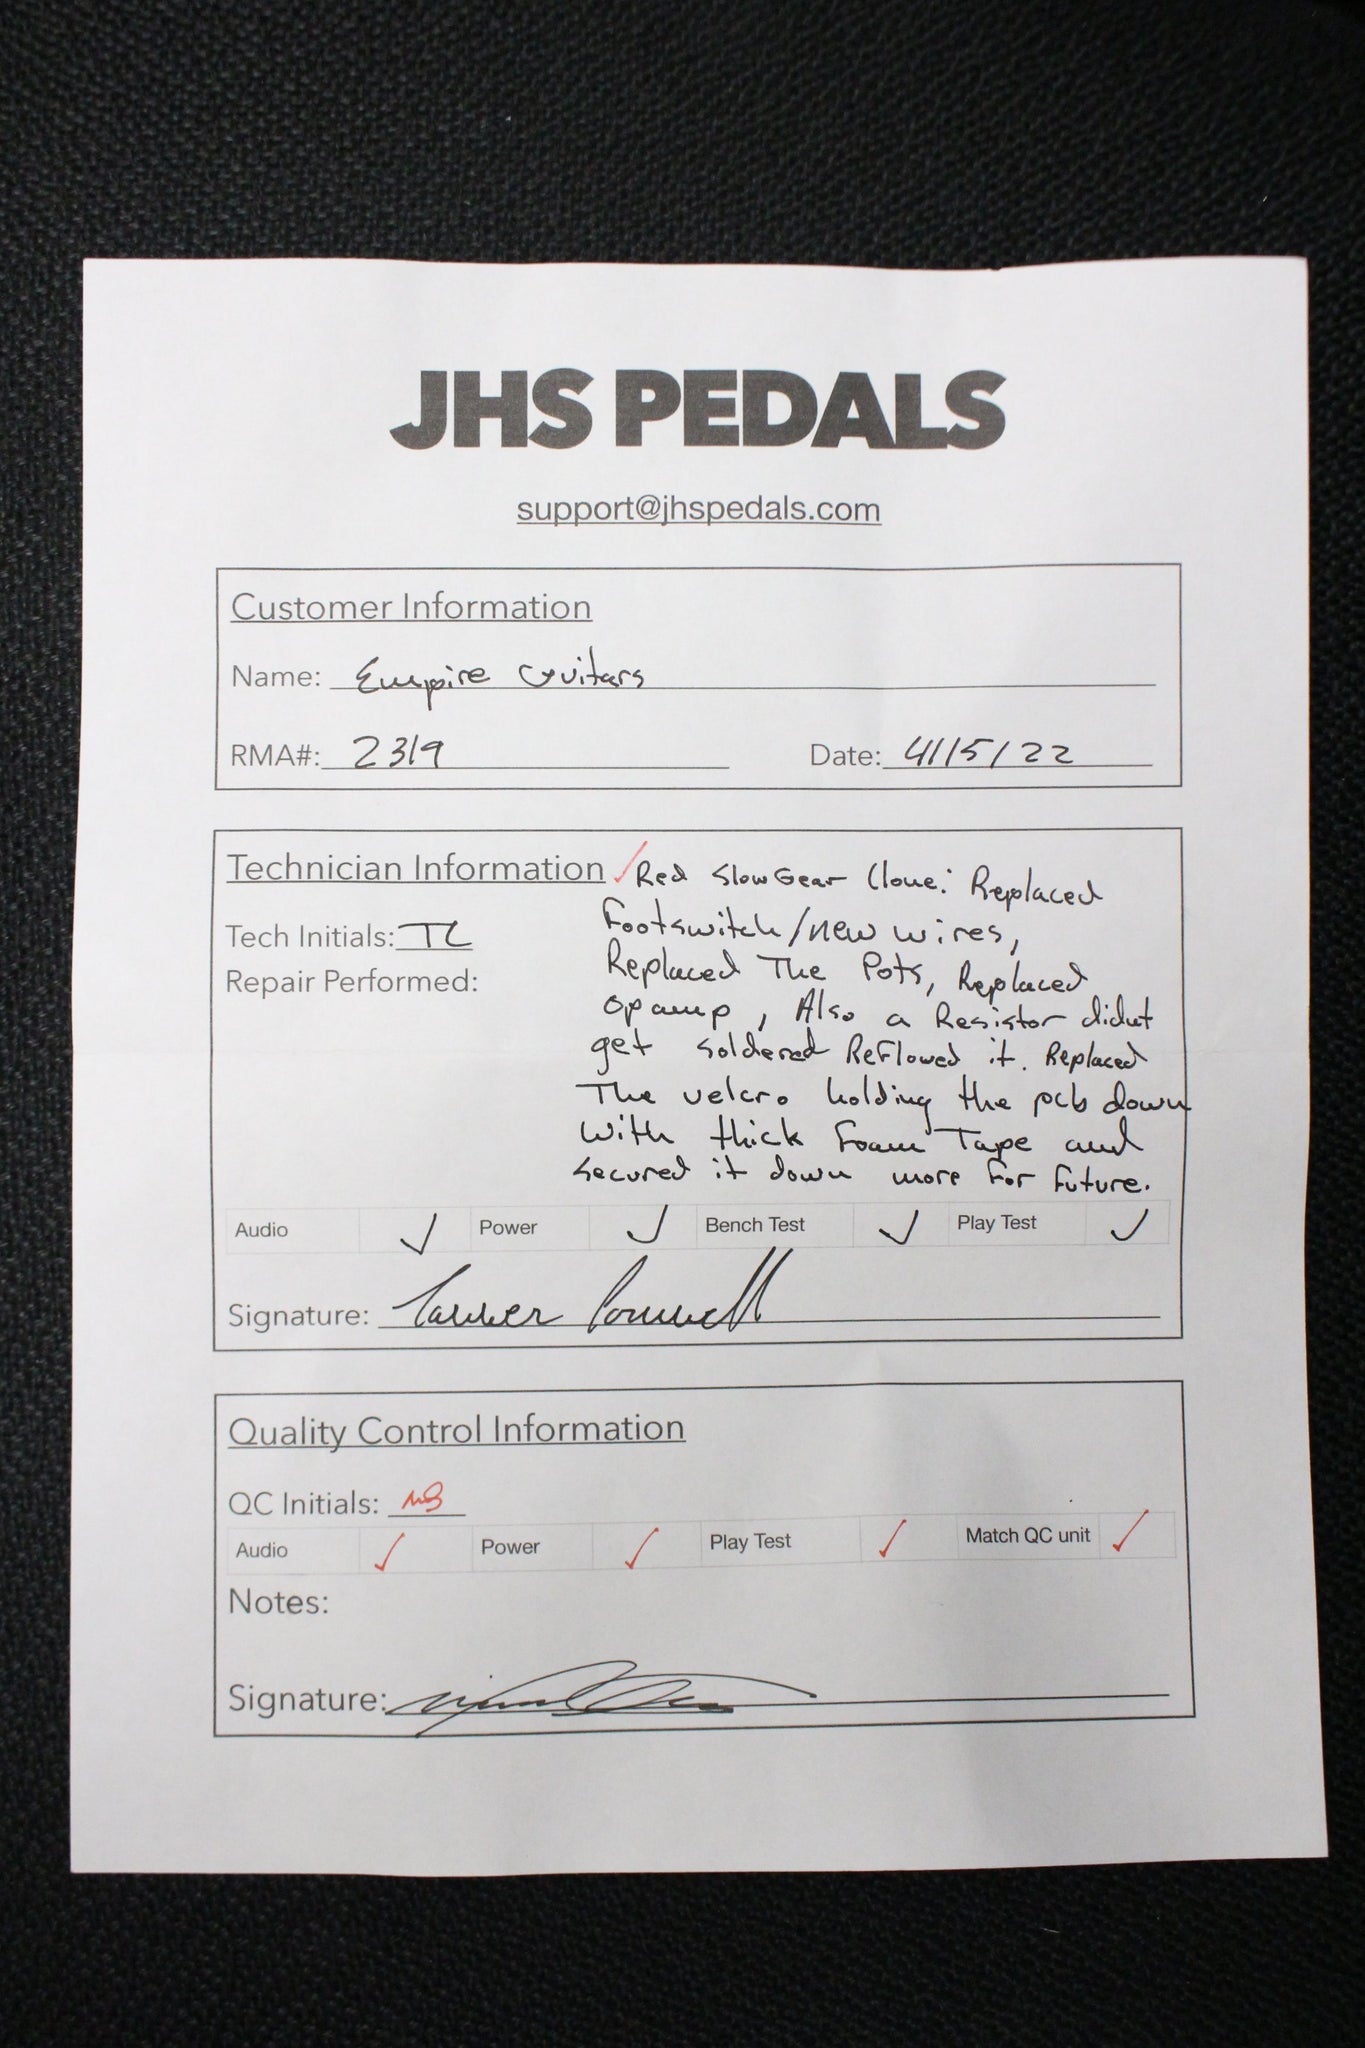 JHS PEDALS
support@jhspedals.com
Customer Information
Name: Empire Guitars
RMA#: 2319
Date: 4/15/22
Technician Information
Tech Initials: TL
Repair Performed:
Red SlowGear Clone: Replaced
Footswitch/new wires,
Replaced The Pots, Replaced
opamp, Also a Resistor didnt
get soldered Reflowed it. Replaced
The velcro holding the pcb down
with thick Foam Tape and
secured it down more for future.
Audio ✓ Power ✓ Bench Test ✓ Play Test ✓
Signature:
Quality Control Information
QC Initials:
Audio ✓ Power ✓ Play Test ✓ Match QC unit ✓
Notes:
Signature: